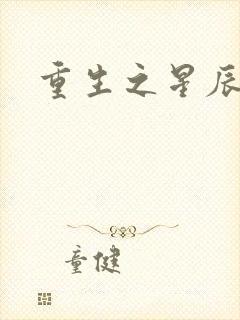 重生之星辰
童健